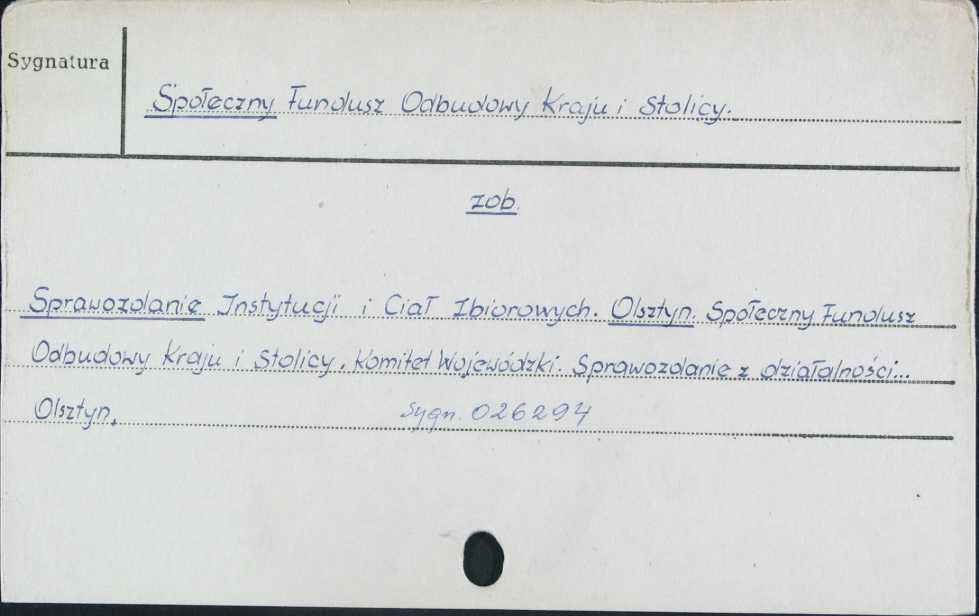 Sygnatura
Społeczny Fundusz Odbudowy Kraju i Stolicy.
zob.
Sprawozdanie Instytucji i Ciał Zbiorowych. Olsztyn. Społeczny Fundusz
Odbudowy Kraju i Stolicy. Komitet Wojewódzki. Sprawozdanie z działalności...
Olsztyn. Sygn. 026294